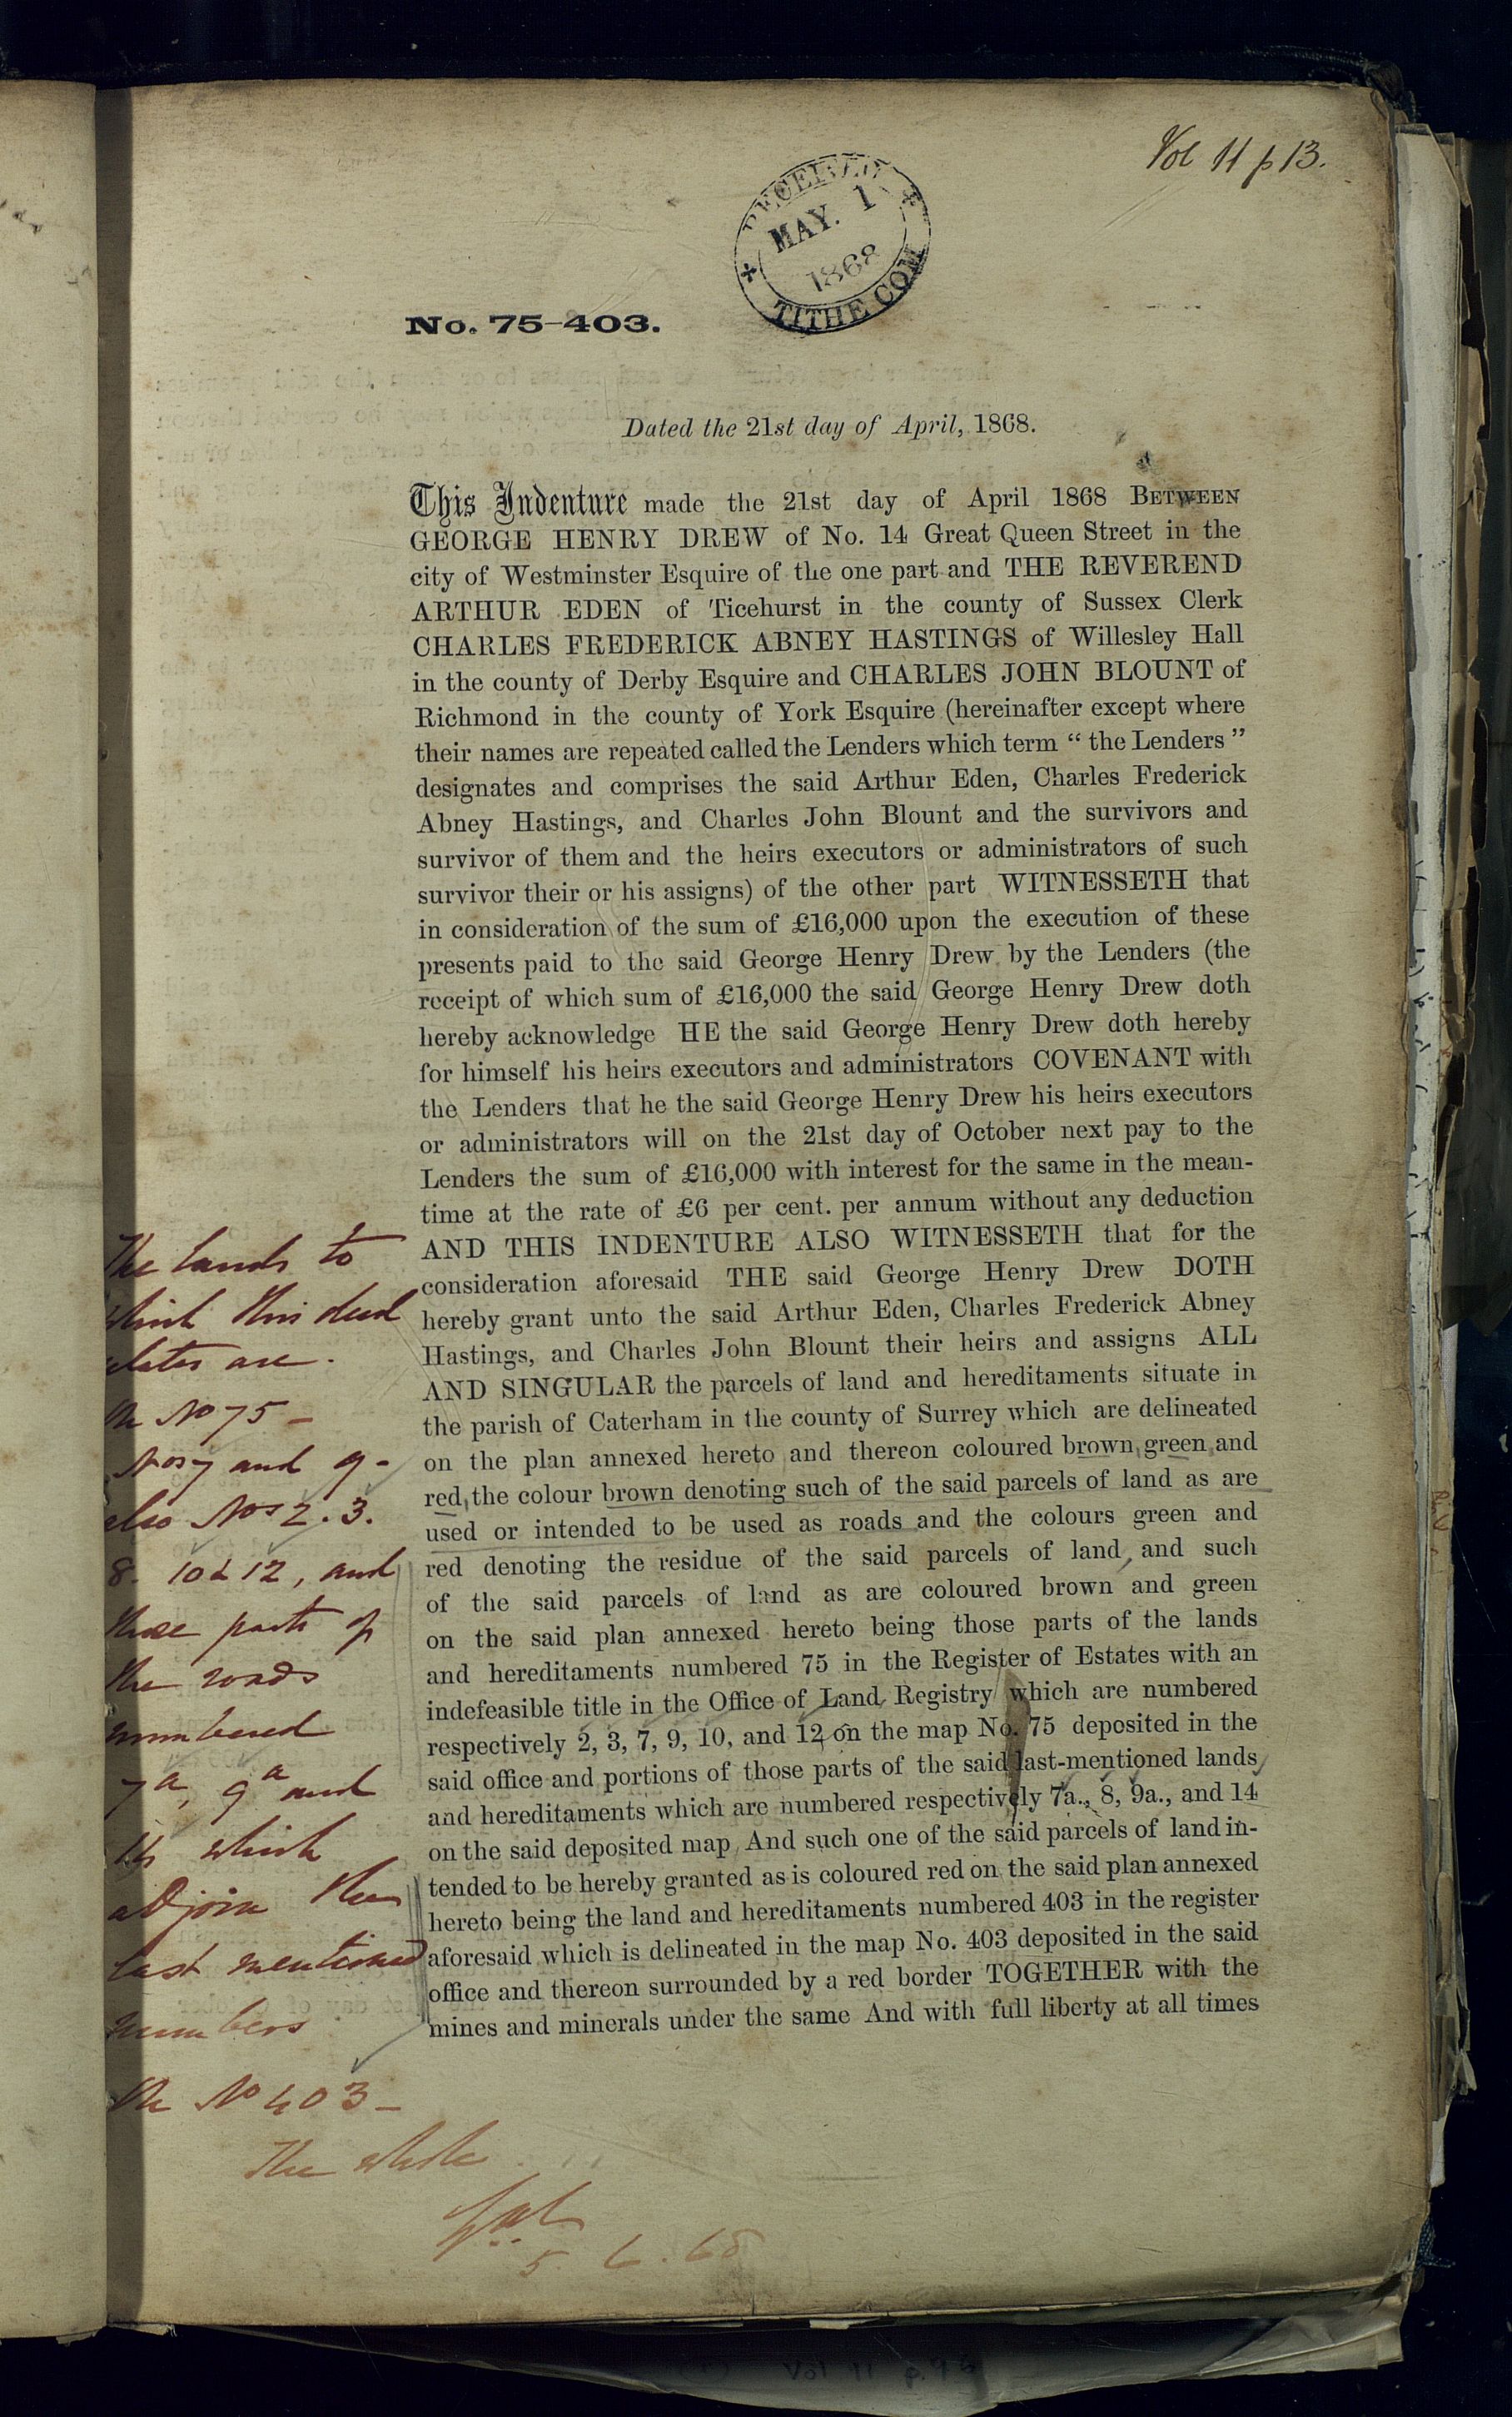 Vol 11 p 13.
RECEIVED
MAY. 1
1868
TITHE COM
No. 75-403.
Dated the 21st day of April, 1868.
This Indenture made the 21st day of April 1868 BETWEEN
GEORGE HENRY DREW of No. 14 Great Queen Street in the
city of Westminster Esquire of the one part and THE REVEREND
ARTHUR EDEN of Ticehurst in the county of Sussex Clerk
CHARLES FREDERICK ABNEY HASTINGS of Willesley Hall
in the county of Derby Esquire and CHARLES JOHN BLOUNT of
Richmond in the county of York Esquire (hereinafter except where
their names are repeated called the Lenders which term “ the Lenders ”
designates and comprises the said Arthur Eden, Charles Frederick
Abney Hastings, and Charles John Blount and the survivors and
survivor of them and the heirs executors or administrators of such
survivor their or his assigns) of the other part WITNESSETH that
in consideration of the sum of £16,000 upon the execution of these
presents paid to the said George Henry Drew by the Lenders (the
receipt of which sum of £16,000 the said George Henry Drew doth
hereby acknowledge HE the said George Henry Drew doth hereby
for himself his heirs executors and administrators COVENANT with
the Lenders that he the said George Henry Drew his heirs executors
or administrators will on the 21st day of October next pay to the
Lenders the sum of £16,000 with interest for the same in the mean-
time at the rate of £6 per cent. per annum without any deduction
AND THIS INDENTURE ALSO WITNESSETH that for the
consideration aforesaid THE said George Henry Drew DOTH
hereby grant unto the said Arthur Eden, Charles Frederick Abney
Hastings, and Charles John Blount their heirs and assigns ALL
AND SINGULAR the parcels of land and hereditaments situate in
the parish of Caterham in the county of Surrey which are delineated
on the plan annexed hereto and thereon coloured brown, green, and
red, the colour brown denoting such of the said parcels of land as are
used or intended to be used as roads and the colours green and
red denoting the residue of the said parcels of land, and such
of the said parcels of land as are coloured brown and green
on the said plan annexed hereto being those parts of the lands
and hereditaments numbered 75 in the Register of Estates with an
indefeasible title in the Office of Land Registry which are numbered
respectively 2, 3, 7, 9, 10, and 12 on the map No. 75 deposited in the
said office and portions of those parts of the said last-mentioned lands
and hereditaments which are numbered respectively 7a., 8, 9a., and 14
on the said deposited map And such one of the said parcels of land in-
tended to be hereby granted as is coloured red on the said plan annexed
hereto being the land and hereditaments numbered 403 in the register
aforesaid which is delineated in the map No. 403 deposited in the said
office and thereon surrounded by a red border TOGETHER with the
mines and minerals under the same And with full liberty at all times
The lands to
which this deed
relates are.
In No 75 -
Nos 7 and 9 -
also Nos 2. 3.
8. 10 & 12, and
those parts of
the roads
numbered
7a, 9a and
14 which
adjoin the
last mentioned
numbers
In No 403 -
The whole
5. 6. 68